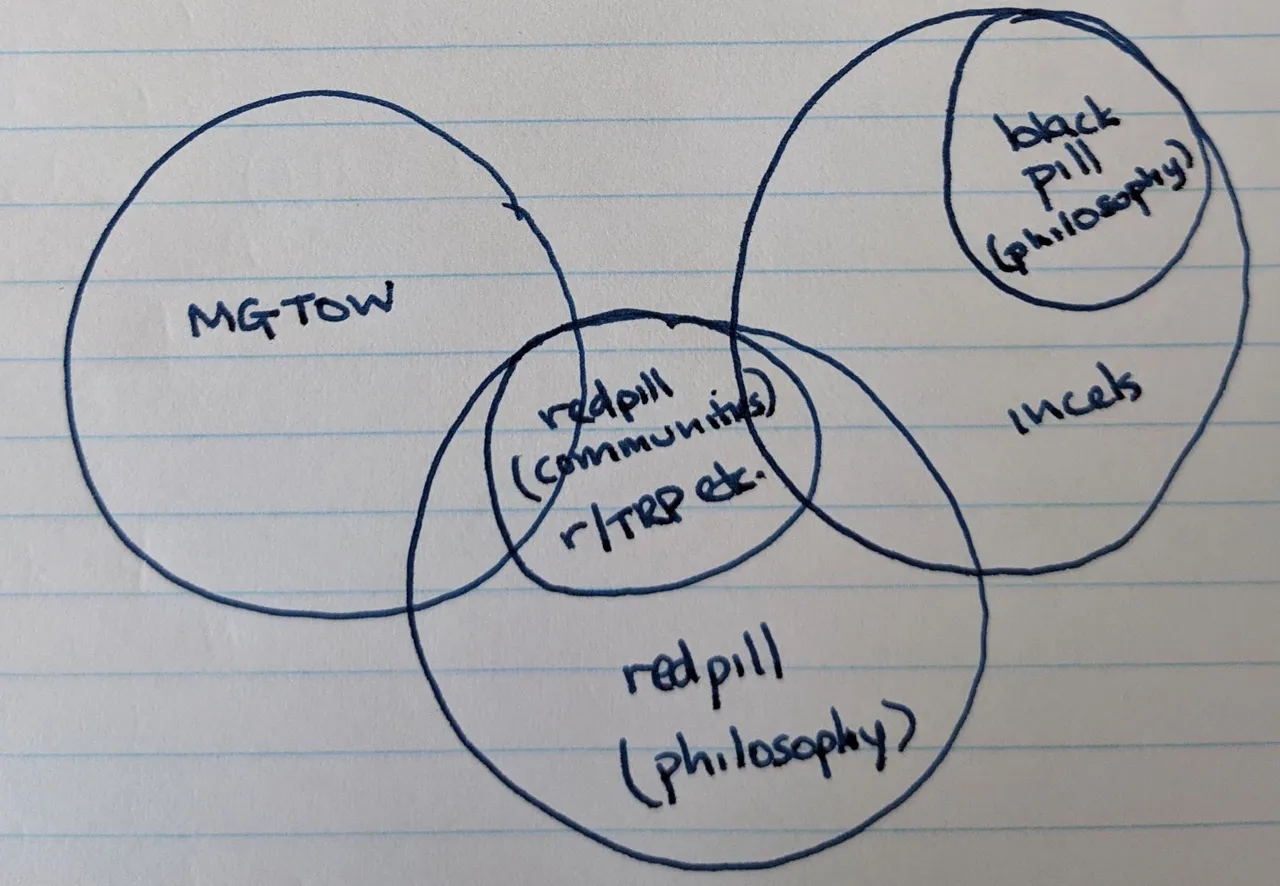 black
pill
(philosophy)
MGTOW
incels
redpill
(communities)
r/TRP etc.
redpill
(philosophy)